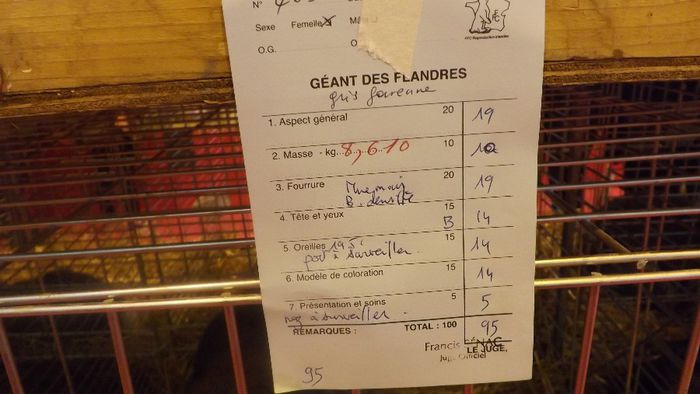 N°
Sexe Femelle X
O.G.
GÉANT DES FLANDRES
gris garenne
1. Aspect général 20 19
2. Masse - kg...8,610 10 10
3. Fourrure 20 19
Mue mais
B. densité
4. Tête et yeux 15 B 14
5. Oreilles 19,5 15 14
port à surveiller.
6. Modèle de coloration 15 14
7. Présentation et soins 5 5
à surveiller.
REMARQUES : TOTAL : 100 95
Francis
LE JUGE,
Juge Officiel
95